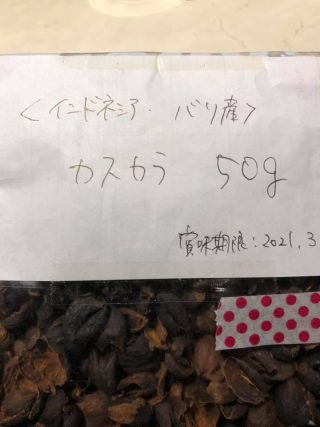 <インドネシア・バリ産>
カスカラ 50g
賞味期限:2021.3